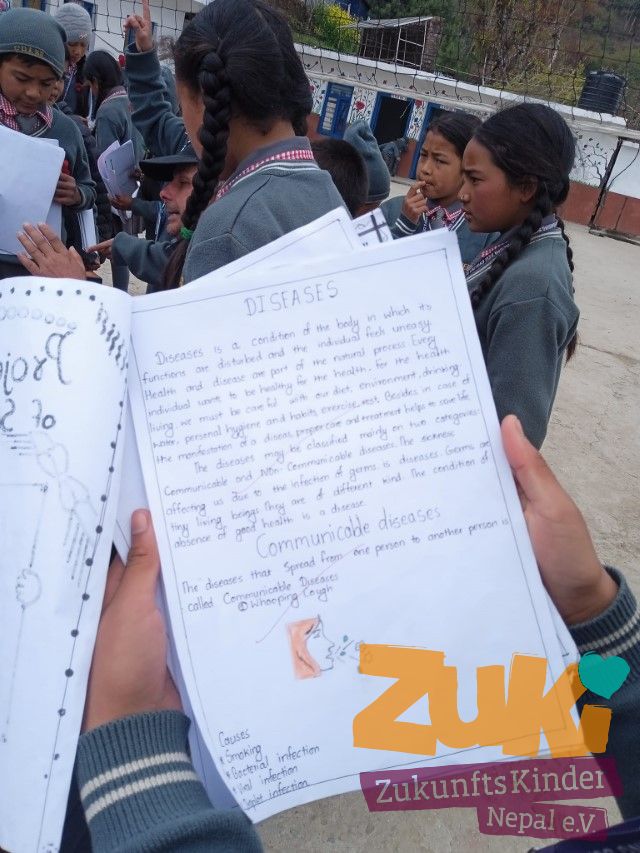 DISEASES
Diseases is a condition of the body in which its
functions are disturbed and the individual feels uneasy.
Health and disease are part of the natural process Every
individual want to be healthy for the health. for the health
living, we must be careful with our diet, environment, drinking
water, personal hygiene and habits, exercise, rest. Besides in case of
the manifestation of a diseas, proper care and treatment helps to save life.
The diseases may be classified mainly on two categories:
Communicable and Non-Communicable diseases. The sickness
affecting us due to the infection of germs is diseases. Germs are
tiny living beings They are of different kind. The condition of
absence of good health is a disease.
Communicable diseases
The diseases that spread from one person to another person is
called Communicable Diseases
① Whooping Cough
Causes
* Smoking
* Bacterial infection
* Viral infection
infection
Proje
of S
ZUKi
ZukunftsKinder
Nepal e.V.